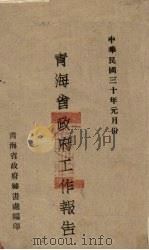 中華民國三十年元月份
青海省政府工作報告
青海省政府秘書處編印